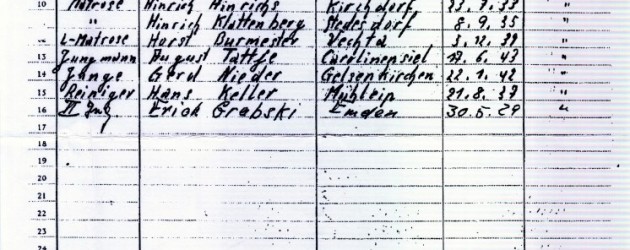 10 Matrose Hinrich Hinrichs Kirchdorf "
" Hinrich Klattenberg Stedesdorf 8.9.35 "
12 L-Matrose Horst Burmester Vechta 3.12.39 "
13 Jungmann August Carolinensiel 17.6.43 "
14 Junge Gerd Nieder Gelsenkirchen 22.1.42 "
15 Reiniger Hans Keller 31.8.37 "
16 II Erich Grabski Emden 30.5.29 "
17
18
19
20
21
22
23
24